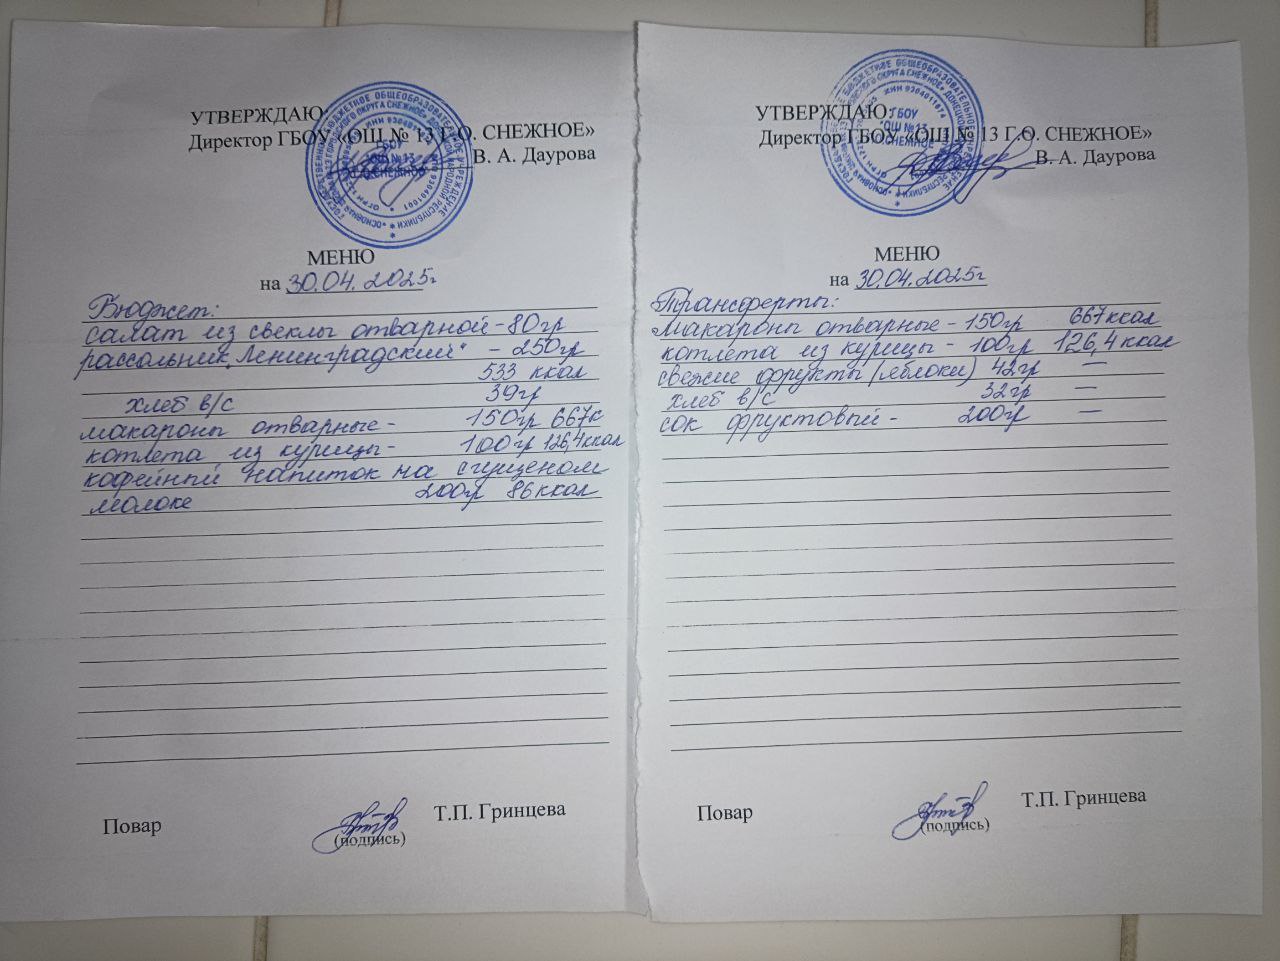 УТВЕРЖДАЮ:
Директор ГБОУ «ОШ № 13 Г.О. СНЕЖНОЕ»
В. А. Даурова
ГБОУ
"ОШ № 13
Г.О.СНЕЖНОЕ"
МЕНЮ
на 30.04.2025г
Бюджет:
салат из свеклы отварной - 80гр
рассольник "Ленинградский" - 250гр
533 ккал
хлеб в/с 39гр
макароны отварные - 150гр 667к
котлета из курицы - 100гр 126,4ккал
кофейный напиток на сгущеном
молоке 200гр 86ккал
Повар
Т.П. Гринцева
(подпись)
УТВЕРЖДАЮ:
Директор ГБОУ «ОШ № 13 Г.О. СНЕЖНОЕ»
В. А. Даурова
ГБОУ
"ОШ № 13
Г.О.СНЕЖНОЕ"
МЕНЮ
на 30.04.2025г
Трансферты:
макароны отварные - 150гр 667ккал
котлета из курицы - 100гр 126,4ккал
свежие фрукты (яблоки) 42гр —
хлеб в/с 32гр —
сок фруктовый - 200гр —
Повар
Т.П. Гринцева
(подпись)